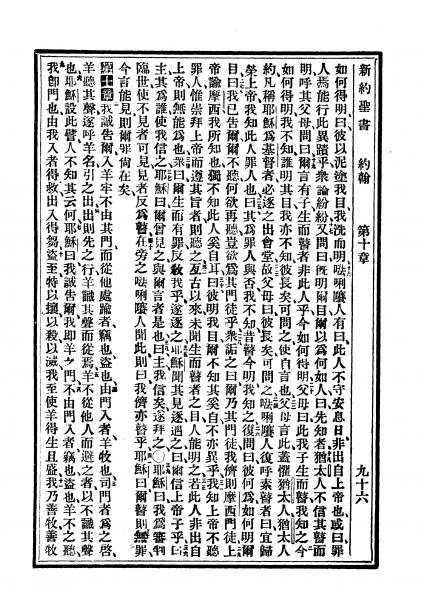 新約聖書 約翰 第十章 九十六
如何得明曰彼以泥塗我目我洗而明𠵽唎㘔人有曰此人不守安息日非出自上帝也或曰罪
人焉能行此異蹟乎衆論紛紛又問曰旣明爾目爾以爲何如人曰先知者猶太人不信其瞽而
明呼其父母問曰爾言有子生而瞽者非此人乎今如何得明父母曰此我子生而瞽我知之今
如何得明我不知誰明其目我亦不知彼長矣可問之使自言也父母言此蓋懼猶太人猶太人
約凡稱耶穌爲基督者必逐之出會堂故父母曰彼長矣可問之𠵽唎㘔人復呼素瞽者曰宜歸
榮上帝我知此人罪人也曰其爲罪人與否我不知昔瞽今明我知之復問曰彼何爲如何明爾
目曰我已告爾爾不聽何欲再聽豈欲爲其門徒乎衆詬之曰爾乃其門徒我儕則摩西門徒上
帝諭摩西我所知也獨不知此人奚自耳曰彼明我目爾不知其奚自不亦異乎我知上帝不聽
罪人惟崇拜上帝而遵其旨者則聽之亙古以來未聞生而瞽者之目人能明之若此人非出自
上帝則無能爲也衆曰爾生而有罪反教我乎遂逐之耶穌聞其見逐遇之曰爾信上帝子乎曰
主其爲誰使我信之耶穌曰爾曾見之與爾言者是也曰主我信矣遂拜之〇耶穌曰我爲審判
臨世使不見者可見見者反爲瞽在旁之𠵽唎㘔人聞此則曰我儕亦瞽乎耶穌曰爾瞽則無罪
今言能見則爾罪尙在矣
第十章我誠告爾入羊牢不由其門而從他處踰者竊也盜也由門入者羊牧也司門者爲之啓
羊聽其聲遂呼羊名引之出出則先之行羊識其聲而從焉羊不從他人而避之者以不識其聲
也耶穌設此譬人不知其云何耶穌曰我誠告爾我卽羊之門不由門入者竊也盜也羊不之聽
我卽門也由我入者得救出入得芻盜至特以攘以殺以滅我至使羊得生且盛我乃善牧善牧